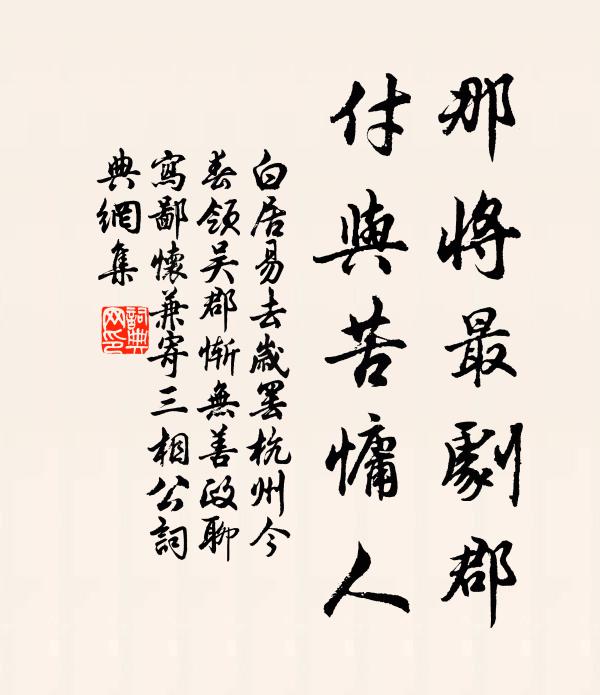 那將最劇郡
付與苦慵人
白居易去歲罷杭州今
春領吳郡慚無善政聊
寫鄙懷兼寄三相公詞
典網集
詞典
网印